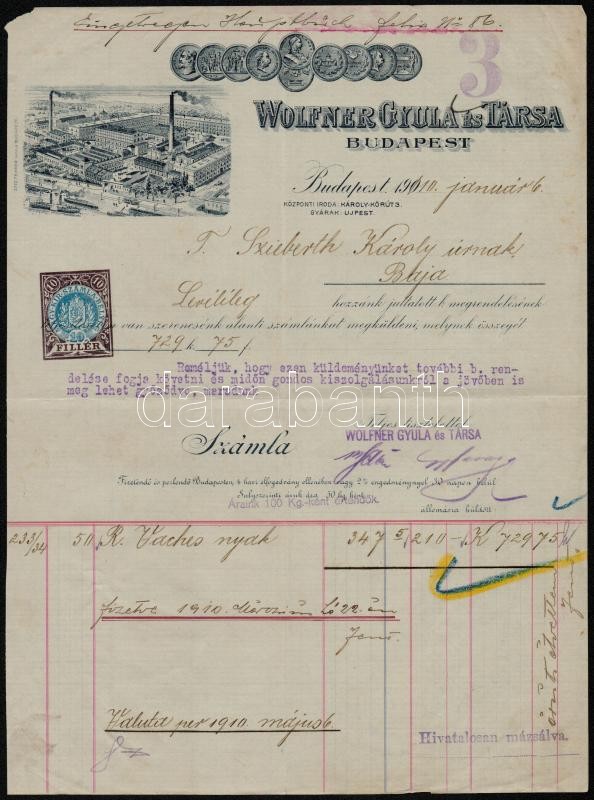 Eingetragen Hauptbuch Folio No 86.
3
WOLFNER GYULA ÉS TÁRSA
BUDAPEST
Budapest, 1910. január 6.
KÖZPONTI IRODA: KÁROLY-KÖRÚT 3.
GYÁRAK: UJPEST.
T. Szieberth Károly úrnak,
Baja
10 10
20
FILLÉR
Levélileg hozzánk juttatott b. megrendelésének
van szerencsénk alanti számlánkat megküldeni, melynek összegét
729 k 75 f.
Reméljük, hogy ezen küldeményünket további b. ren-
delése fogja követni és midőn gondos kiszolgálásunkról a jövőben is
meg lehet győződve, maradunk
Teljes tisztelettel
WOLFNER GYULA és TÁRSA
darabanth
Számla
Fizetendő és perlendő Budapesten, 4 havi elfogadvány ellenében vagy 2% engedménynyel 30 napon belül
Súlyszerinti árúk ára 50 kg.ként
Áraink 100 Kg.-ként értendők.
állomásra küldött
233/34 50 R. Vaches nyak 347 5 210 - K 729 75
fizetve 1910. Március hó 22.én
Jenő.
Valuta per 1910. május 6.
Hivatalosan mázsálva.